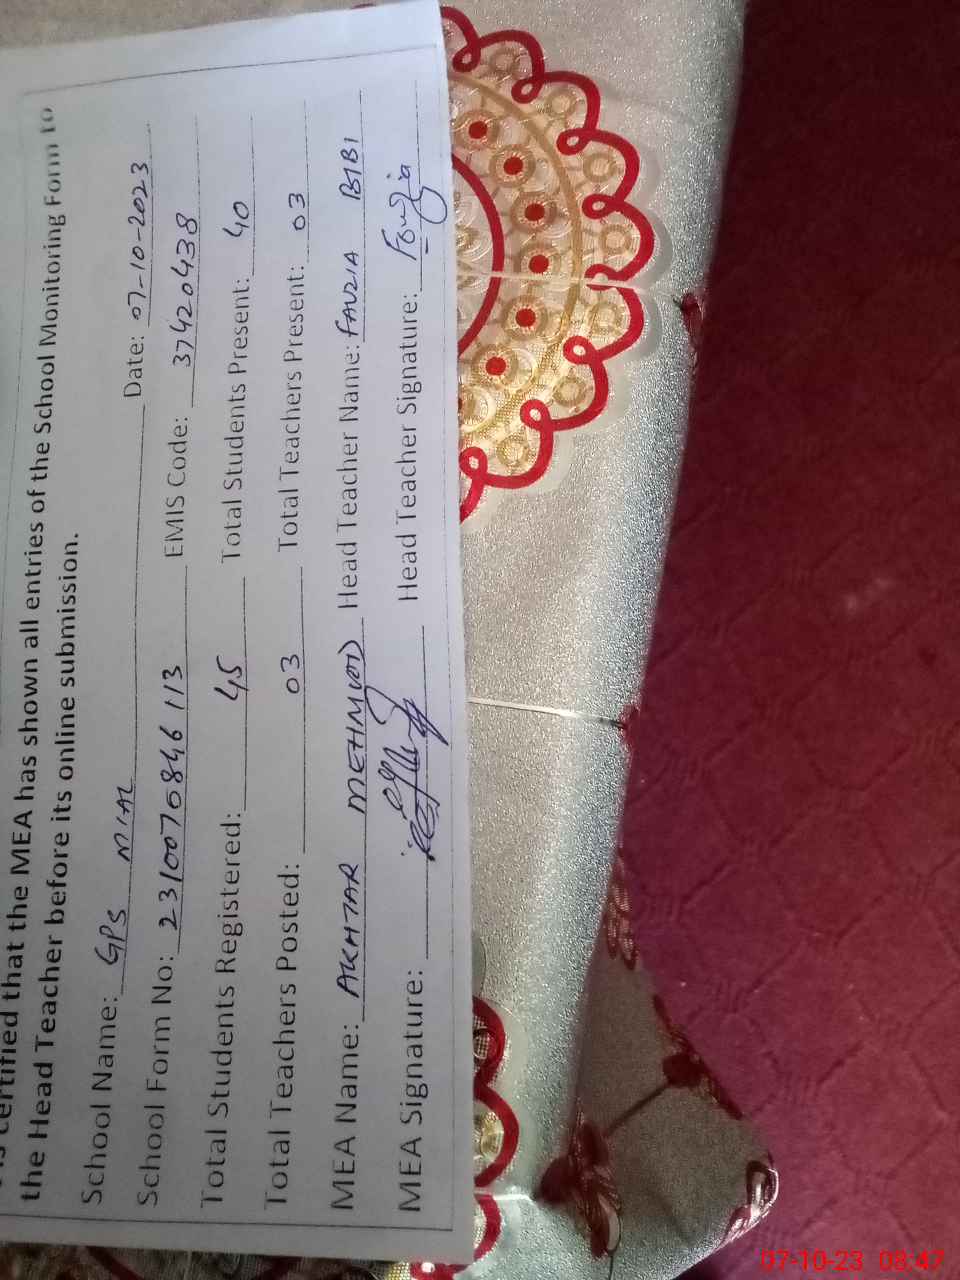 certified that the MEA has shown all entries of the School Monitoring Form to
the Head Teacher before its online submission.
School Name: GPS MIAL Date: 07-10-2023
School Form No: 2310070846113 EMIS Code: 37420438
Total Students Registered: 45 Total Students Present: 40
Total Teachers Posted: 03 Total Teachers Present: 03
MEA Name: AKHTAR MEHMOOD Head Teacher Name: FAUZIA BIBI
MEA Signature: Head Teacher Signature: Fouzia
07-10-23 08:47